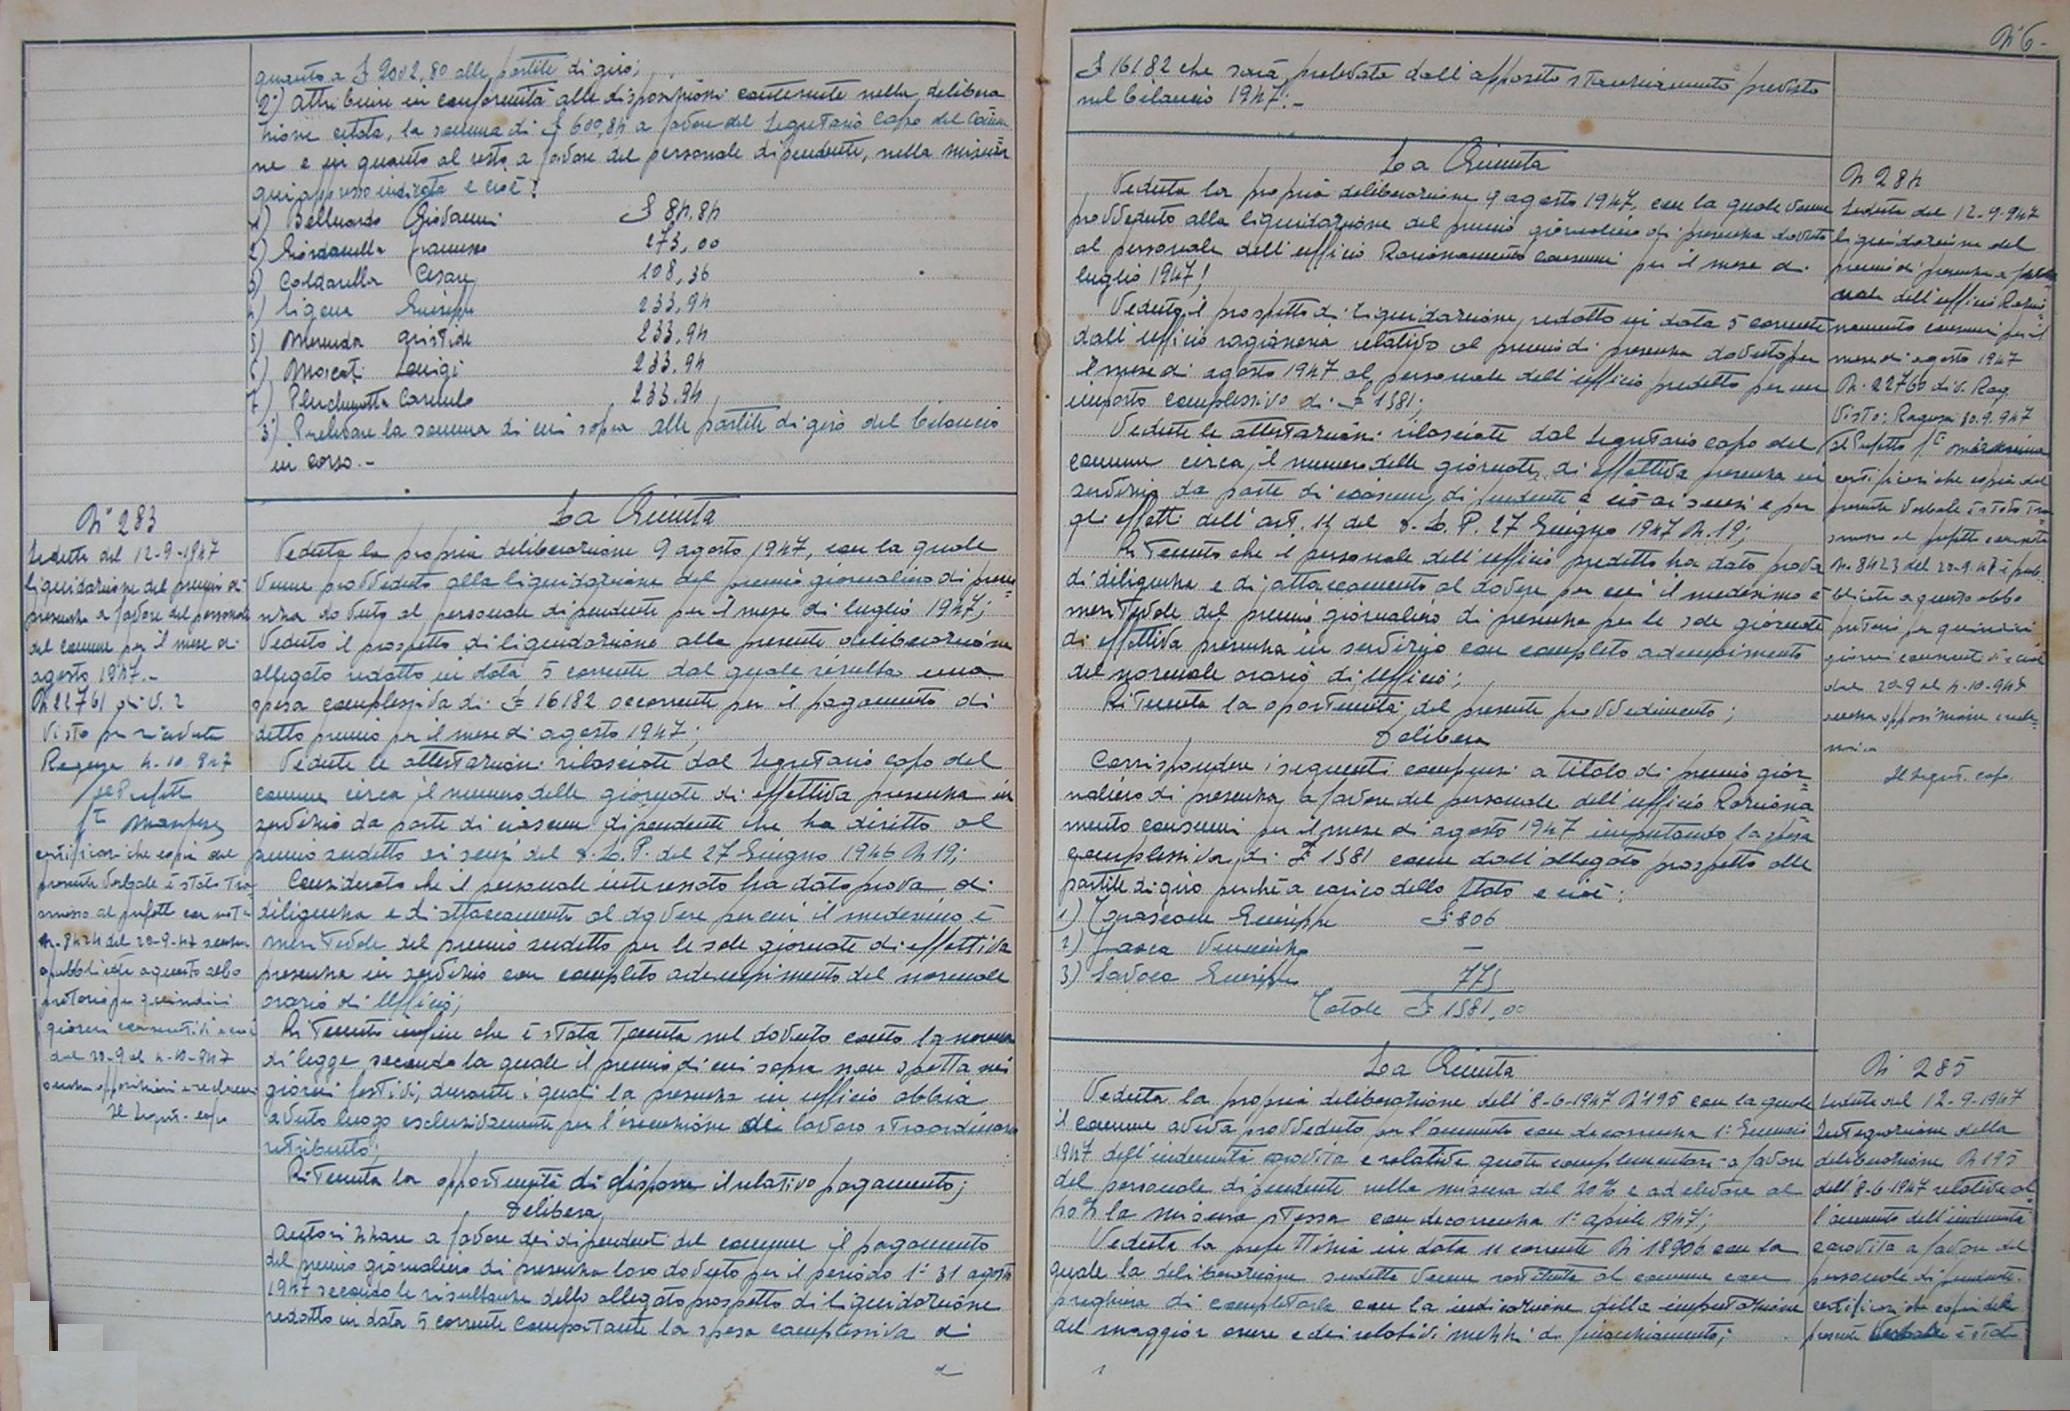 quanto a £ 2002,80 alle partite di giro;
2°) Attribuire in conformità alle disposizioni contenute nella delibera
zione citata, la somma di £ 600,84 a favore del Segretario Capo del Comu
ne e in quanto al resto a favore del personale dipendente, nella misura
qui appresso indicata e cioè:
1) Belluardo Giovanni £ 84,84
2) Giordanella Francesco 273,00
3) Caldarella Cesare 108,36
4) Ligera Giuseppe 233,94
5) Merenda Aristide 233,94
6) Moscati Luigi 233,94
7) Carmelo 233,94
3°) Prelevare la somma di cui sopra alle partite di giro del bilancio
in corso.-
N° 283
Seduta del 12-9-1947
liquidazione del premio di
presenza a favore del personale
del comune per il mese di
agosto 1947.-
N. 22761 di V. 2
Visto per ricevuta
Ragusa 4.10.947
Il Prefetto
certifico che copia del
presente verbale è stato tra
smesso al prefetto con nota
N. 8424 del 20-9-47 senza
pubblicata a questo albo
pretorio per quindici
giorni consecutivi e cioè
dal 20-9 al 4-10-947
senza opposizioni e reclami
Il Segret. capo
La Giunta
Veduta la propria deliberazione 9 agosto 1947, con la quale
venne provveduto alla liquidazione del premio giornaliero di prese
nza dovuto al personale dipendente per il mese di luglio 1947;
Veduto il prospetto di liquidazione alla presente deliberazione
allegato redatto in data 5 corrente dal quale risulta una
spesa complessiva di £ 16182 occorrente per il pagamento di
detto premio per il mese di agosto 1947;
Vedute le attestazioni rilasciate dal Segretario capo del
comune circa il numero delle giornate di effettiva presenza in
servizio da parte di ciascun dipendente che ha diritto al
premio suddetto ai sensi del D.L.P. del 27 Giugno 1946 N 19;
Considerato che il personale interessato ha dato prova di
diligenza e di attaccamento al dovere per cui il medesimo è
meritevole del premio suddetto per le sole giornate di effettiva
presenza in servizio con completo adempimento del normale
orario di ufficio;
Ritenuto infine che è stata tenuta nel dovuto conto la norma
di legge secondo la quale il premio di cui sopra non spetta nei
giorni festivi, durante i quali la presenza in ufficio abbia
avuto luogo esclusivamente per l'esecuzione di lavoro straordinario
retribuito;
Ritenuta la opportunità di disporre il relativo pagamento;
Delibera
Autorizzare a favore dei dipendenti del comune il pagamento
del premio giornaliero di presenza loro dovuto per il periodo 1° 31 agosto
1947 secondo le risultanze dello allegato prospetto di liquidazione
redatto in data 5 corrente comportante la spesa complessiva di
N° 6-
£ 16182 che sarà prelevata dall'apposito stanziamento previsto
nel bilancio 1947.-
La Giunta
Veduta la propria deliberazione 9 agosto 1947, con la quale venne
provveduto alla liquidazione del premio giornaliero di presenza dovuto
al personale dell'ufficio Razionamento consumi per il mese di
luglio 1947;
Veduto il prospetto di liquidazione, redatto in data 5 corrente
dall'ufficio ragioneria relativo al premio di presenza dovuto per
il mese di agosto 1947 al personale dell'ufficio predetto per un
importo complessivo di £ 1581;
Vedute le attestazioni rilasciate dal Segretario capo del
comune circa il numero delle giornate di effettiva presenza in
servizio da parte di ciascun dipendente e ciò ai sensi e per
gli effetti dell'art. 14 del D.L.P. 27 Giugno 1947 N. 19;
Ritenuto che il personale dell'ufficio predetto ha dato prova
di diligenza e di attaccamento al dovere per cui il medesimo è
meritevole del premio giornaliero di presenza per le sole giornate
di effettiva presenza in servizio con completo adempimento
del normale orario di ufficio;
Ritenuta la oportunità del presente provvedimento;
Delibera
Corrispondere i seguenti compensi a titolo di premio gior
naliero di presenza, a favore del personale dell'ufficio Raziona
mento consumi per il mese di agosto 1947 imputando la spesa
complessiva di £ 1581 come dall'allegato prospetto alle
partite di giro perché a carico dello Stato e cioè:
1) Giuseppe £ 806
2) Vincenzo —
3) Lavoca Giuseppe 775
Totale £ 1581,00
N 284
Seduta del 12-9-947
liquidazione del
premio di presenza a perso
nale dell'ufficio Razio
namento consumi per il
mese di agosto 1947
N. 22760 di V. Rag.
Visto: Ragusa 30.9.947
Il Prefetto
certifico che copia del
presente verbale è stato tra
smesso al prefetto con nota
N. 8423 del 20-9-47 è pub
blicata a questo albo
pretorio per quindici
giorni consecutivi e cioè
dal 20-9 al 4-10-947
senza opposizioni
Il Segret. capo
La Giunta
Veduta la propria deliberazione dell'8-6-1947 N°195 con la quale
il comune aveva provveduto per l'aumento con decorrenza 1° Gennaio
1947 dell'indennità carovita e relative quote complementari a favore
del personale dipendente nella misura del 20% e ad elevare al
40% la misura stessa con decorrenza 1° aprile 1947;
Veduta la prefettizia in data 11 corrente N° 18906 con la
quale la deliberazione suddetta venne restituita al comune con
preghiera di completarla con la indicazione della imputazione
del maggior onere e dei relativi mezzi di finanziamento;
N 285
Seduta del 12-9-1947
Integrazione della
deliberazione N 195
dell'8-6-1947 relativa al
l'aumento dell'indennità
carovita a favore del
personale dipendente.
certifico che copia del
presente verbale è stato